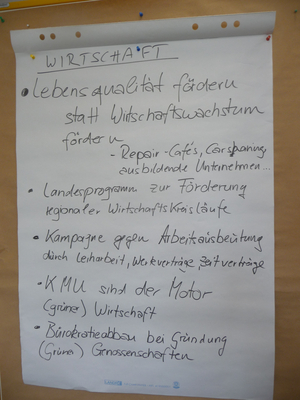 WIRTSCHAFT
• Lebensqualität fördern
statt Wirtschaftswachstum
fördern
- Repair-Cafés, Carsharing,
ausbildende Unternehmen...
• Landesprogramm zur Förderung
regionaler Wirtschaftskreisläufe
• Kampagne gegen Arbeitsausbeutung
durch Leiharbeit, Werkverträge, Zeitverträge
• KMU sind der Motor
(grüner) Wirtschaft
• Bürokratieabbau bei Gründung
(Grüner) Genossenschaften